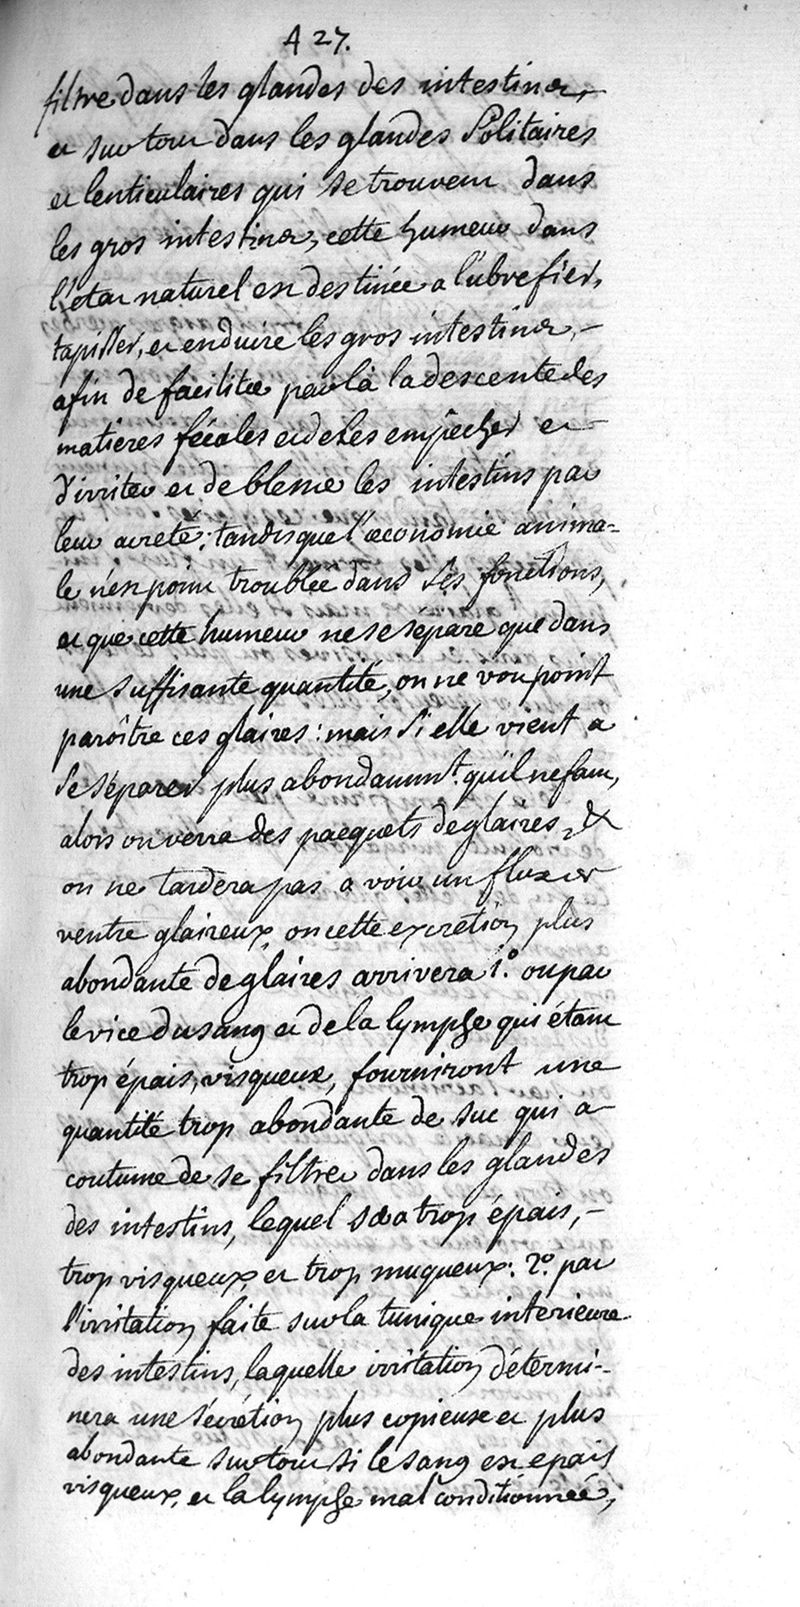 427.
filtre dans les glandes des intestins,
et surtout dans les glandes Solitaires
et lenticulaires qui se trouvent dans
les gros intestins, cette humeur dans
l'état naturel est destinée a lubrefier,
tapisser, et enduire les gros intestins,
afin de faciliter par là la descente des
matieres fécales et de les empêcher et
d'irriter et de blesser les intestins par
leur acreté: tandis que l'œconomie anima=
le n'est point troublée dans ses fonctions,
et que cette humeur ne se sépare que dans
une suffisante quantité, on ne voit point
paroître ces glaires: mais si elle vient a
se séparer plus abondamm.t qu'il ne faut,
alors on verra des pacquets de glaires, &
on ne tardera pas a voir un flux de
ventre glaireux, on cette excretion plus
abondante de glaires arrivera 1.° ou par
le vice du sang et de la lymphe qui étant
trop épais, visqueux, fourniront une
quantité trop abondante de suc qui a
coutume de se filtrer dans les glandes
des intestins, lequel sera trop épais,
trop visqueux, et trop muqueux: 2.° par
l'irritation faite sur la tunique interieure
des intestins, laquelle irritation détermi-
nera une sécrétion plus copieuse et plus
abondante surtout si le sang est epais
visqueux, et la lymphe mal conditionnée,